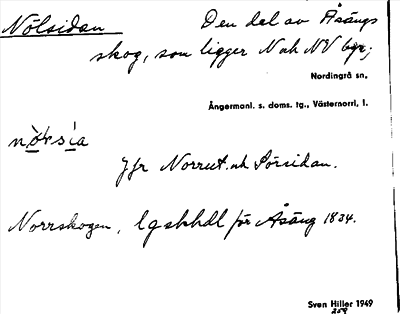 Nölsidan Den del av Åsängs
skog, som ligger N ok NV byn;
Nordingrå sn.
Ångermanl. s. doms. tg., Västernorrl. l.
Jfr Norrut. ok Sörsidan.
Norrskogen, lgskhdl för Åsäng 1834.
Sven Hiller 1949